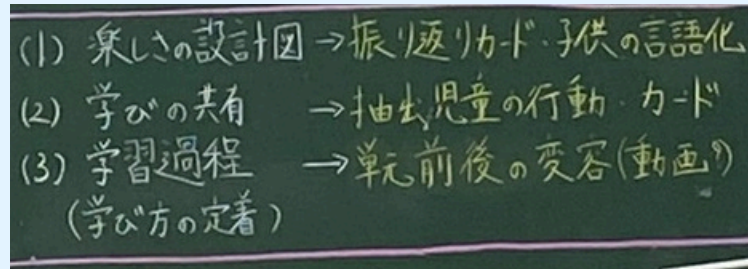 (1) 楽しさの設計図→振り返りカード・子供の言語化
(2) 学びの共有 →抽出児童の行動・カード
(3) 学習過程 →単元前後の変容(動画?)
(学び方の定着)